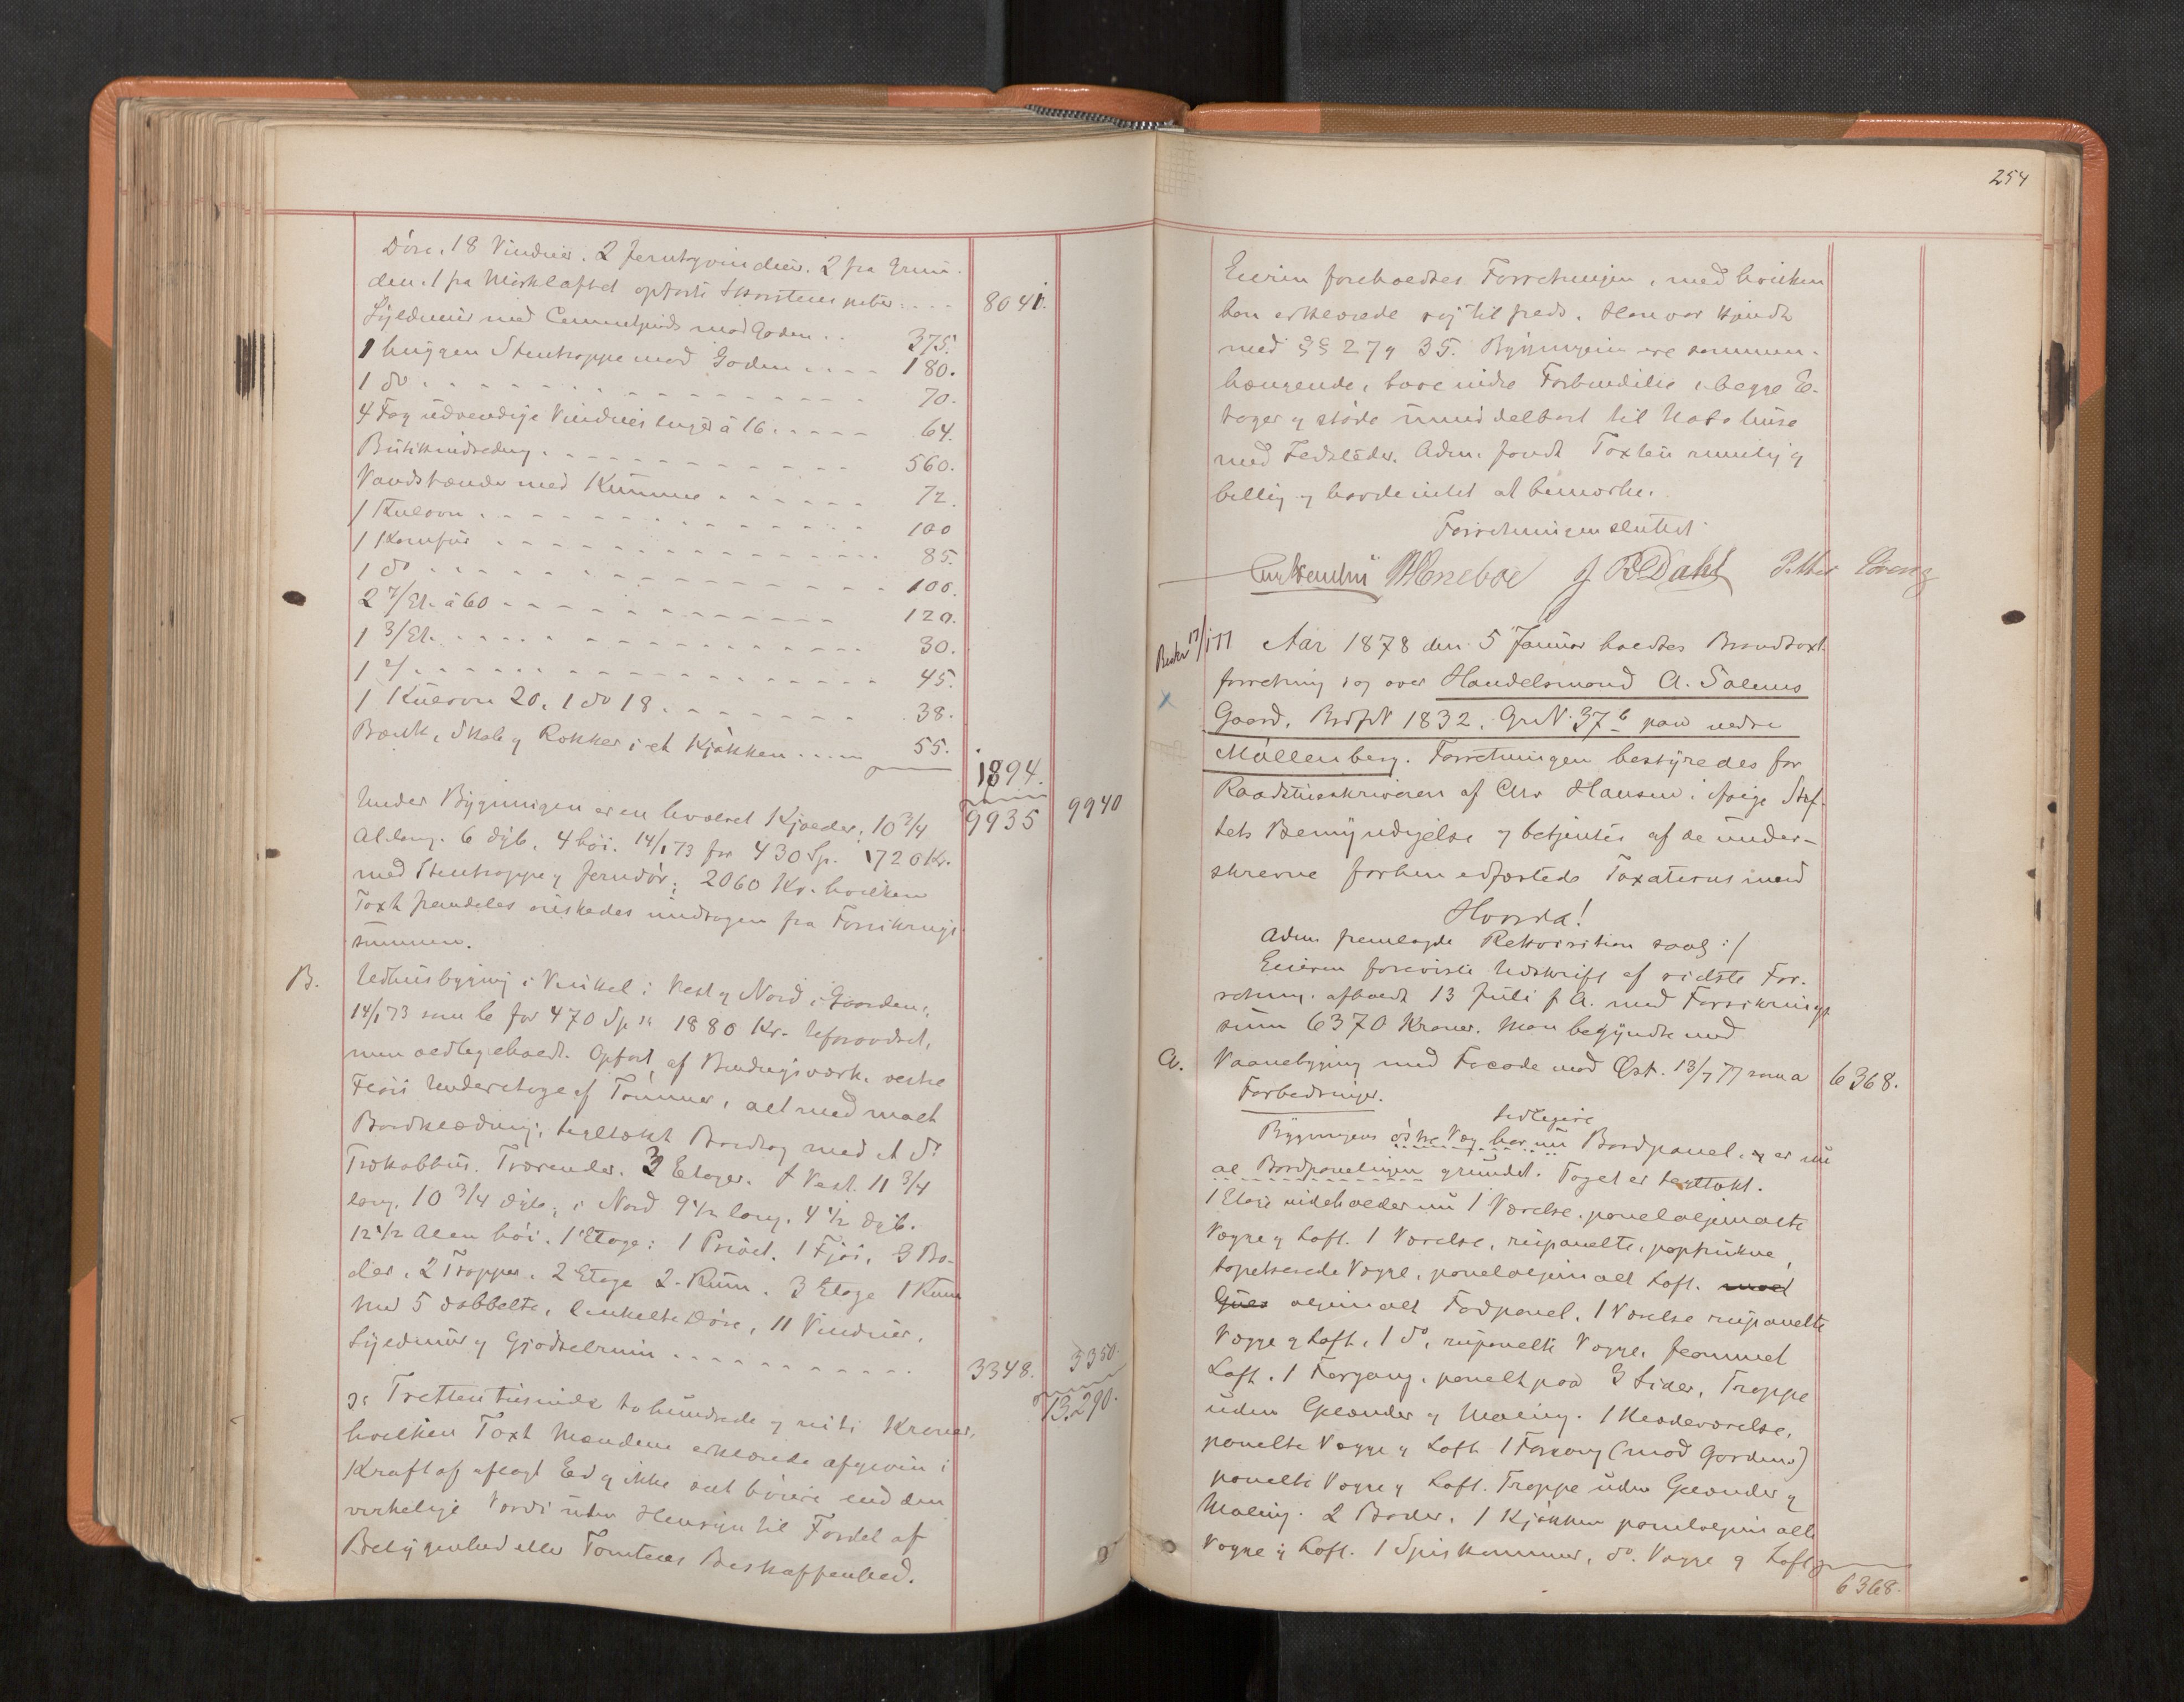 Döre. 18 Vinduer. 2 Jerntrvinduer. 2 fra Grun-
den. 1 fra Mörkloftet opförte Skorstenspiber. ... 8041.
Skyldmur med Cementpuds mod Gaden .. 375.
1 huggen Stentrappe mod Gaden .... 180.
1 do ........ 70.
4 Fag udvendige Vindues luger à 16 ..... 64.
Butikindredning ........ 560.
Vandstænder med Kumme ...... 72.
1 Kulovn ........ 100
1 Komfur ........ 85.
1 do ........ 100.
2 4/Et. à 60 ........ 120.
1 3/Et. ........ 30.
1 2/ ........ 45.
1 Kulovn 20. 1 do 18 ....... 38.
Bænk, Skab og Rækker i et Kjökken ..... 55.
1894.
Under Bygningen er en hvælvet Kjælder, 10 3/4 9935 9940
Al. lang. 6 dyb. 4 höi. 14/1 73 for 430 Sp. 1720 Kr.
med Stentrappe og Jerndör; 2060 Kr. hvilken
Taxt fremdeles önskedes undtagen fra Forsikrings
summen.
B. Udhusbygning i Vinkel i Vest og Nord i Gaarden,
14/1 73 som b for 470 Sp. er 1880 Kr. Uforandret,
men vedligeholdt. Opfört af Bindingsværk. vestre
Flöis Underetage af Tömmer, alt med malt
Bordklædning; tegltækt Bordtag med et do
Trækobbhus. Trærender. 3 Etager. I Vest. 11 3/4
lang. 10 3/4 dyb; i Nord 9 1/2 lang. 4 1/2 dyb.
12 1/2 Alen höi. 1 Etage: 1 Privet. 1 Fjös, 3 Bo-
der. 2 Trapper. 2 Etage 2 Rum. 3 Etage 1 Rum
med 5 dobbelte, enkelte Döre, 11 Vinduer,
Skyldmur og Gjödselrum .......... 3348. 3350.
er Tretten tusinde to hundrede og niti Kroner, 13.290.
hvilken Taxt Mændene erklærede afgiven i
Kraft af aflagt Ed og ikke sat höiere end den
virkelige Værdi uden Hensyn til Fordel af
Beliggenhed eller Tomtens Beskaffenhed.
254
Eieren foreholdtes Forretningen, med hvilken
han erklærede sig tilfreds. Han var kjendt
med §§ 27 og 35. Bygningerne ere sammen-
hængende, have indre Forbindelse i begge E-
tager og stöde umiddelbart til Nabohuse
med Ildsteder. Adm. fandt Taxten rimelig og
billig og havde intet at bemærke.
Forretningen sluttet
J B Dahl Petter Lorenz
17/1 77 Aar 1878 den 5 Januar holdtes Brandtaxt
forretning og over Handelsmand A. Solems
Gaard, Brdf N 1832. Gr. N. 37 b paa nedre
Möllenberg. Forretningen bestyredes for
Raadstueskriveren af Chr Hansen i fölge Stif-
tets Bemyndigelse og betjentes af de under-
skrevne forhen edfæstede Taxations mænd
Hvorda!
Adm fremlagde Rekvisition saal: /
Eieren foreviste Udskrift af sidste For-
retning. afholdt 13 Juli f. A. med Forsikrings
sum 6370 Kroner. Man begyndte med
A. Vaanebygning med Facade mod Öst. 13/7 77 som a 6368.
Forbedringer.
tidligere
Bygningens östre Væg har nu Bordpanel. og er nu
al Bordpanelingen grundet. Taget er tegltækt.
1 Etage indeholder nu 1 Værelse. paneloljemalte
Vægge og Loft. 1 Værelse, rupanelte, paptrukne,
tapetserede Vægge, paneloljemalt Loft. malt
Gues oljemalt Fodpanel. 1 Værelse rupanelte
Vægge og Loft. 1 do, rupanelte Vægge, flammet
Loft. 1 Forgang. panelt paa 3 Sider, Trappe
uden Gelænder og Maling. 1 Klædeværelse,
panelte Vægge og Loft 1 Forgang (mod Gaarden)
panelte Vægge og Loft. Trappe uden Gelænder og
Maling. 2 Boder. 1 Kjökken paneloljemalte
Vægge og Loft. 1 Spiskammer, do. Vægge og Loft
6368.